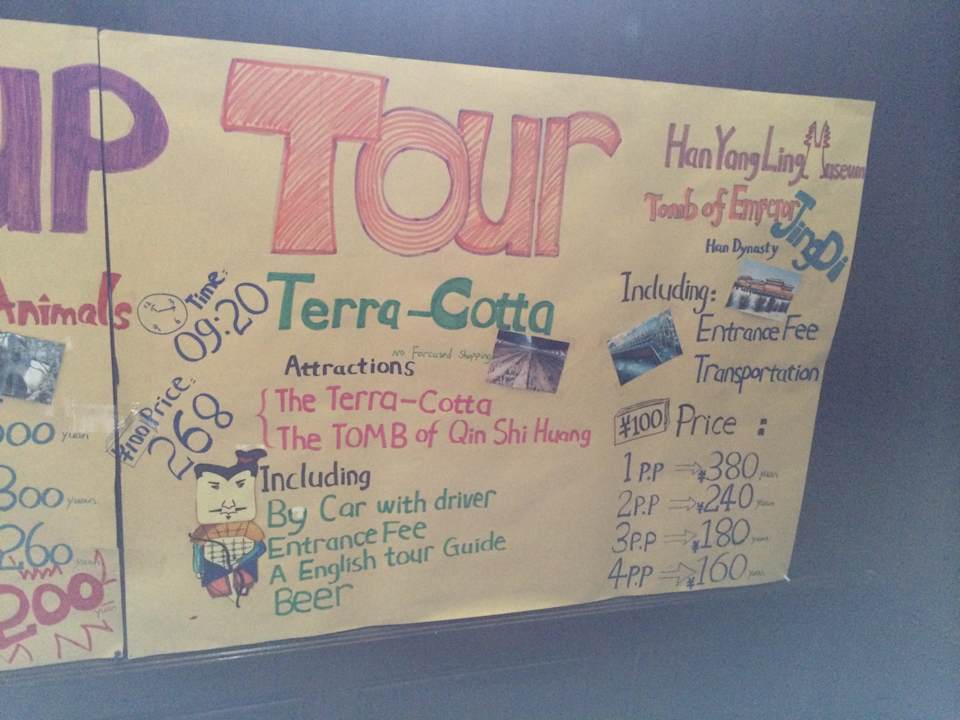 up
Animals
000 yuan
300 yuan
260 yuan
200 yuan
Tour
Time:
09:20
Terra-Cotta
No Forcused Shopping
Attractions
¥100 Price:
268
The Terra-Cotta
The TOMB of Qin Shi Huang
Including
By Car with driver
Entrance Fee
A English tour Guide
Beer
Han Yang Ling Museum
Tomb of Emperor JingDi
Han Dynasty
Including:
Entrance Fee
Transportation
¥100 Price :
1P.P ⇒ ¥380 yuan
2P.P ⇒ ¥240 yuan
3P.P ⇒ ¥180 yuan
4P.P ⇒ ¥160 yuan